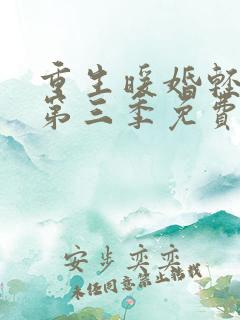 重生暖婚輕
第三季免費
安步奕奕
未经同意禁止转载